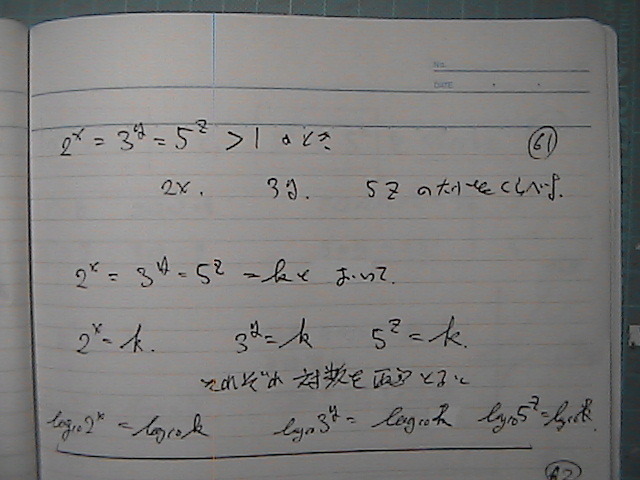 No.
DATE
2^x = 3^y = 5^z > 1 のとき (61)
2x. 3y. 5z の大小をくらべよ.
2^x = 3^y = 5^z = k とおいて.
2^x = k. 3^y = k 5^z = k.
それぞれ対数を両辺とると
log₁₀2^x = log₁₀k log₁₀3^y = log₁₀k log₁₀5^z = log₁₀k.